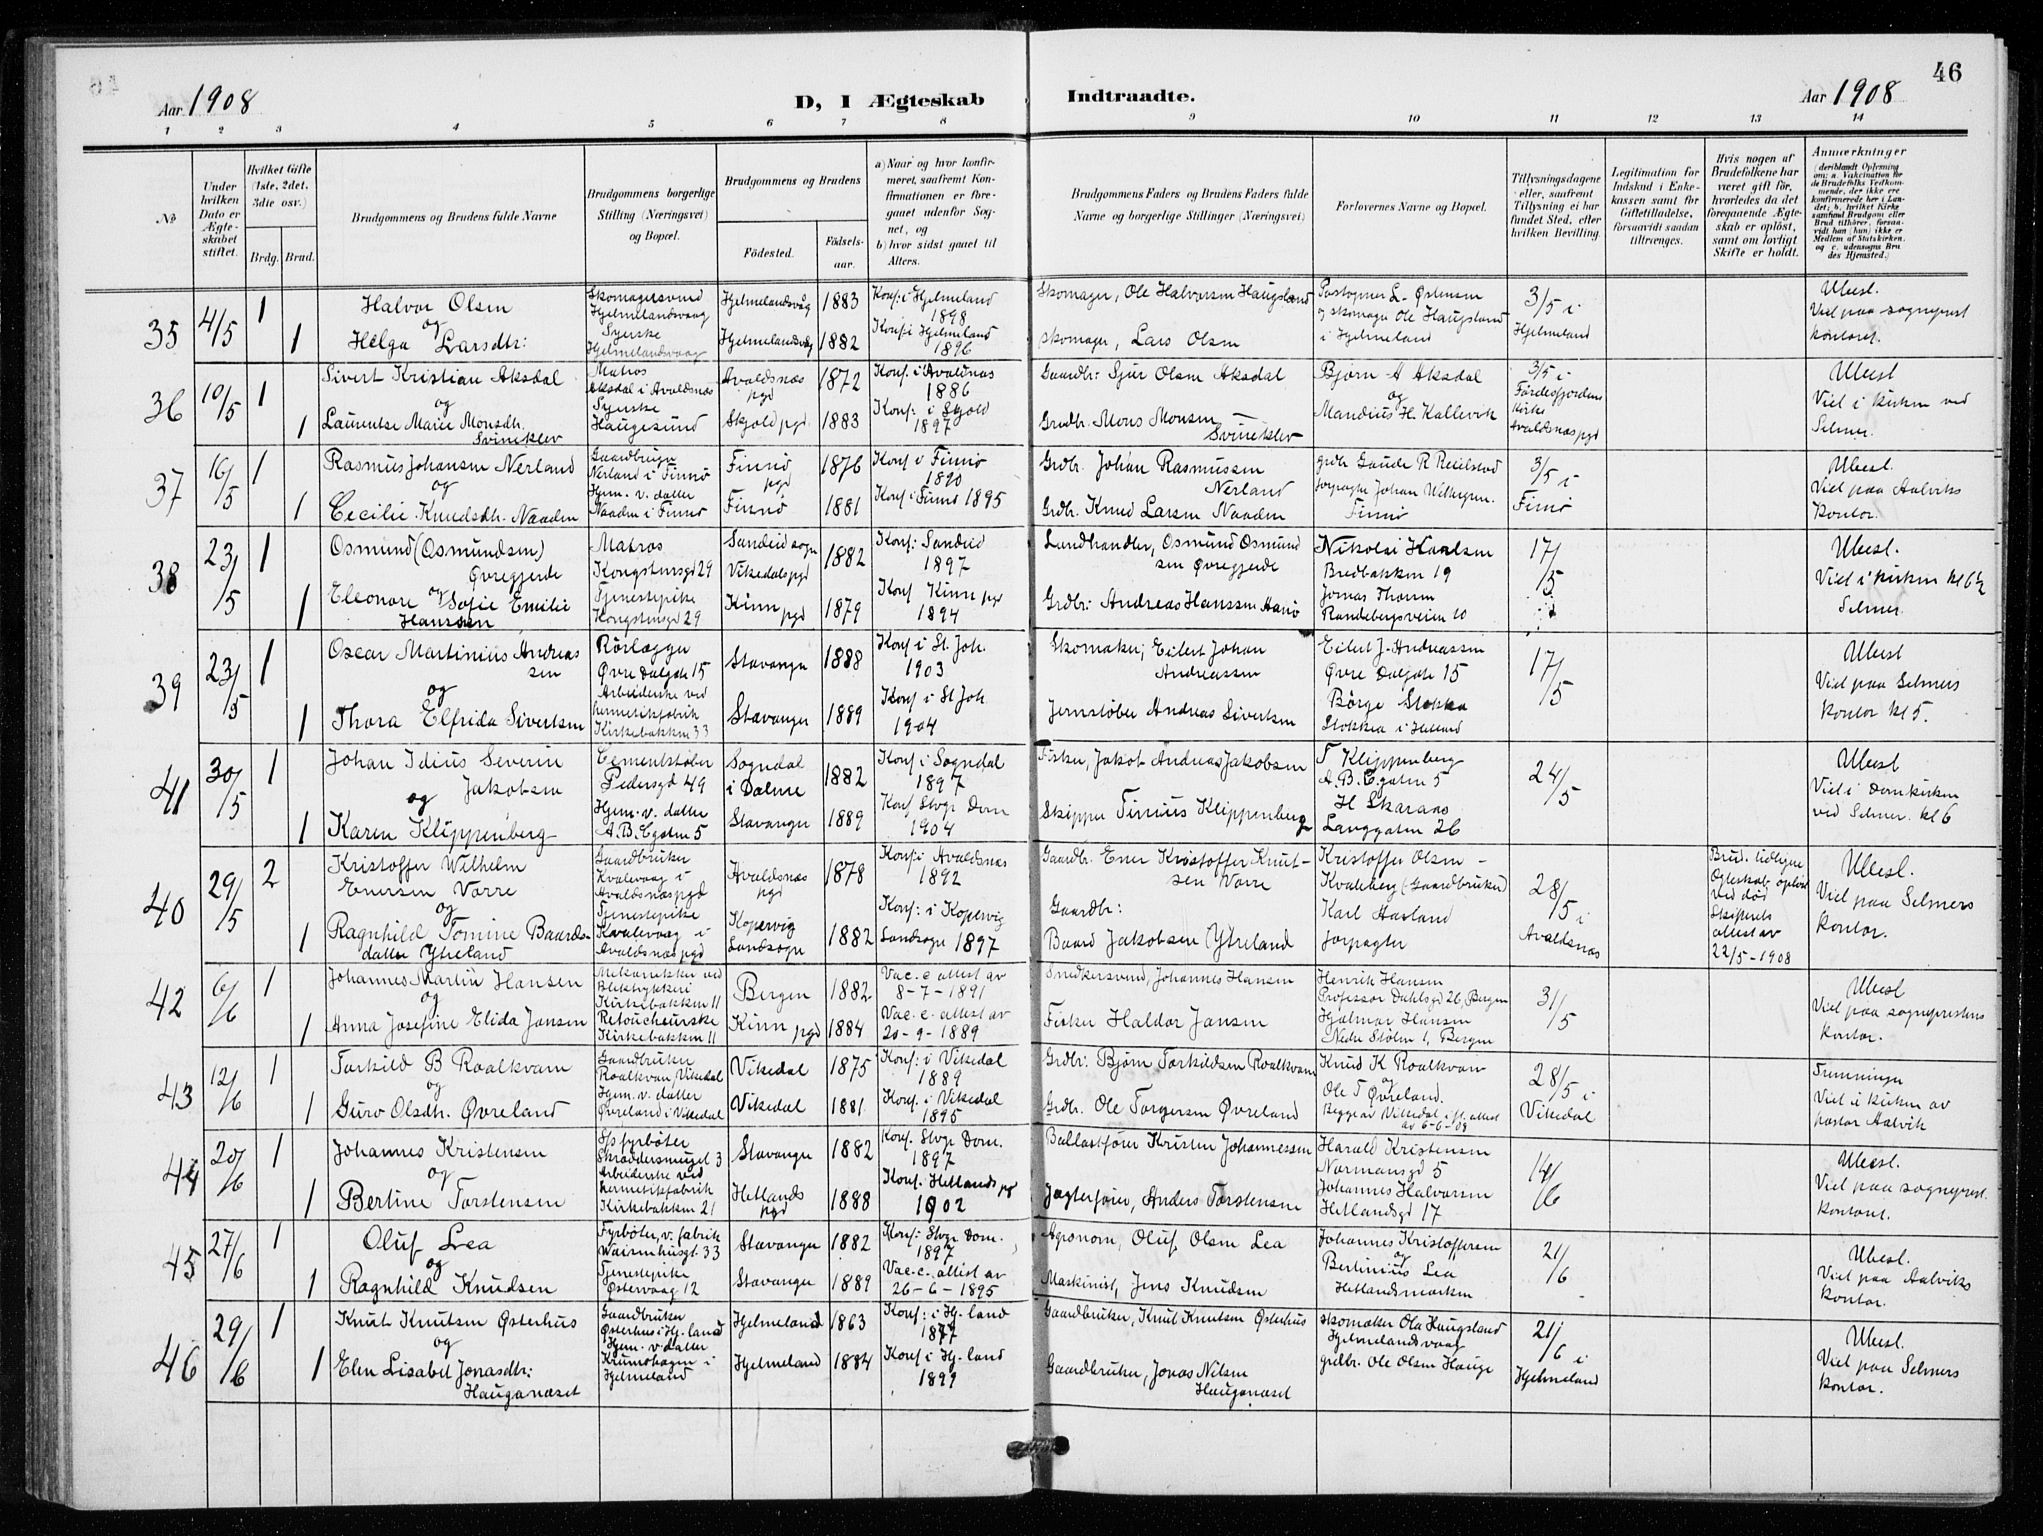 46
Aar 1908
D, I Ægteskab
Indtraadte.
Aar 1908
1 2 3 4 5 6 7 8 9 10 11 12 13 14
No
Under hvilken Dato er Ægteskabet stiftet.
Hvilket Gifte (1ste, 2det, 3die osv.)
Brdg. Brud.
Brudgommens og Brudens fulde Navne
Brudgommens borgerlige Stilling (Næringsvei) og Bopæl.
Brudgommens og Brudens
Fødested.
Fødselsaar.
a) Naar og hvor konfirmeret, saafremt Konfirmationen er foregaaet udenfor Sognet, og
b) hvor sidst gaaet til Alters.
Brudgommens Faders og Brudens Faders fulde Navne og borgerlige Stillinger (Næringsvei)
Forlovernes Navne og Bopæl.
Tillysningsdagene eller, saafremt Tillysning ei har fundet Sted, efter hvilken Bevilling.
Legitimation for Indskud i Enkekassen samt for Giftetilladelse, forsaavidt saadan tiltrænges.
Hvis nogen af Brudefolkene har været gift før, hvorledes da det foregaaende Ægteskab er opløst, samt om lovligt Skifte er holdt.
Anmærkninger
35 4/5 1 Halvor Olsen
og
1 Helga Larsdtr:
Skomagersvend
Hjelmelandsvaag
Syerske
Hjelmelandsvaag
Hjelmelandsvåg 1883
Hjelmelandsvåg 1882
Konf: i Hjelmeland
1898
Konf: i Hjelmeland
1896
Skomager, Ole Halvorsen Haugsland
skomager, Lars Olsen
Postopner L. Østensen
og skomager Ole Haugsland
i Hjelmeland
3/5 i
Hjelmeland
Ubesl.
Viet paa sogneprest
kontoret.
36 10/5 1 Sivert Kristian Aksdal
og
1 Laurentse Marie Monsdtr.
Svineklev
Matros
Aksdal i Avaldsnæs
Syerske
Haugesund
Avaldsnæs
pgd 1872
Skjold pgd 1883
Konf. i Avaldsnæs
1886
Konf: i Skjold
1897
Gaardbr: Sjur Olsen Aksdal
Grdbr. Mons Monsen
Svineklev
Bjørn A Aksdal
og
Mandius H. Kallevik
3/5 i
Førdesfjordens
Kirke
Avaldsnæs pgd
Ubesl
Viet i kirken ved
Selmer.
37 16/5 1 Rasmus Johansen Nerland
og
1 Cecilie Knudsdtr. Naaden
Gaardbruger
Nerland i Finnø
Hjem. v. datter
Naaden i Finnø
Finnø
pgd 1876
Finnø 1881
Konf i Finnø
1890
Konf i Finnø 1895
Grdbr. Johan Rasmussen
Nerland
Grdbr. Knud Larsen Naaden
grdbr Gaude R Reilstad
forpagter Johan
Finnø
3/5 i
Finnø
Ubesl.
Viet paa Aalviks
kontor.
38 23/5 1 Osmund (Osmundsen)
Øvregjerde
og
1 Eleonore Sofie Emilie
Hansen
Matros
Kongstensgd 29
Tjenestepike
Kongstensgd 29
Sandeid sogn
Vikedals pgd 1882
Kinn pgd 1879
Konf: Sandeid
1897
Konf Kinn pgd
1894
Landhandler, Osmund Osmund
sen Øvregjerde
Grdbr: Andreas Hanssen
Nikolai Karlsen
Bredbakken 19
Jonas Thorsen
Randebergsveien 10
17/5
Ubesl.
Viet i kirken kl 6½
Selmer.
39 23/5 1 Oscar Martinius Andreas
sen
og
1 Thora Elfrida Sivertsen
Rørlægger
Øvre Dalgate 15
Arbeiderske ved
hermetikfabrik
Kirkebakken 33
Stavanger 1888
Stavanger 1889
Konf i St. Joh.
1903
Konf i St Joh
1904
Skomaker, Eilert Johan
Andreassen
Jernstøber Andreas Sivertsen
Eilert J. Andreassen
Øvre Dalgate 15
Børge Stokka
Stokka i Hetland
17/5
Ubesl
Viet paa Selmers
kontor kl 5.
41 30/5 1 Johan Idius Severin
Jakobsen
og
1 Karen Klippenberg
Cementstøber
Pedersgd 49
Hjem. v. datter
A.B.Cgaten 5
Sogndal
i Dalene 1882
Stavanger 1889
Konf i Sogndal
1897
Konf Stvgr Dom
1904
Fisker, Jakob Andreas Jakobsen
Skipper Tinius Klippenberg
T Klippenberg
A.B.Cgaten 5
H Skaraas
Langgaten 26
24/5
Ubesl
Viet i Domkirken
ved Selmer. kl 6
40 29/5 2 Kristoffer Wilhelm
Enersen Vorre
og
1 Ragnhild Tomine Baards-
datter Ytreland
Gaardbruker
Kvalevaag i
Avaldsnæs pgd
Tjenestepike
Kvalevaag i
Avaldsnæs pgd
Avaldsnæs
pgd 1878
Kopervig
Landsogn 1882
Konf: i Avaldsnæs
1892
Konf: i Kopervig
Landsogn 1897
Gaardbr. Ener Kristoffer Knut-
sen Vorre
Gaardbr:
Baard Jakobsen Ytreland
Kristoffer Olsen -
Kvaleberg (Gaardbruker)
Karl Aasland
forpagter
28/5 i
Avaldsnæs
Brud. tidligere
Egteskab opløst
ved død
Skifterets
attest av
22/5 - 1908
Ubesl.
Viet paa Selmers
kontor.
42 6/6 1 Johannes Martin Hansen
og
1 Anna Josefine Elida Jansen
Mekaniker ved
Bliktrykkeri
Kirkebakken 11
Retoucheurske
Kirkebakken 11
Bergen 1882
Kinn pgd 1884
Vac. c. attest av
8 - 7 - 1891
Vac. c. attest av
20 - 9 - 1889
Snedkersvend, Johannes Hansen
Fisker Haldor Jansen
Henrik Hansen
Professor Dahlsgd 26, Bergen
Hjalmar Hansen
Nedre Stølen 1, Bergen
31/5
Ubesl
Viet paa sogneprestens
kontor.
43 12/6 1 Torkild B Roalkvam
og
1 Guro Olsdtr. Øvreland
Gaardbruker
Roalkvam Vikedal
Hjem. v. datter
Øvreland i Vikedal
Vikedal 1875
Vikedal 1881
Konf: i Vikedal
1889
Konf. i Vikedal
1895
Grdbr: Bjørn Torkildsen Roalkvam
Grdbr. Ole Torgersen Øvreland
Knud K Roalkvam
og
Ole T Øvreland.
Begge av Vikedal i flg. attest
av 6-6-08
28/5 i
Vikedal
Tremenninger
Viet i kirken av
pastor Aalvik
44 20/6 1 Johannes Kristensen
og
1 Bertine Torstensen
S/s fyrbøter
Skræddersmuget 3
Arbeiderske ved
hermetikfabrik
Kirkebakken 21
Stavanger 1882
Hetlands
pgd 1888
Konf. Stvgr Dom.
1897
Konf. Hetlands pg
1902
Ballastfører Kristen Johannessen
Jagtefører, Anders Torstensen
Harald Kristensen
Normansgd 5
Johannes Halvorsen
Hetlandsgd 17
14/6
Ubesl.
Viet paa sogneprest.
kontoret.
45 27/6 1 Oluf Lea
og
1 Ragnhild Knudsen
Fyrbøter, v. fabrik
Waisenhusgt. 33
Tjenestepike
Østervaag 12
Stavanger 1882
Stavanger 1889
Konf: Stvgr Dom.
1897
Vac. c. attest av
26 - 6 - 1895
Agronom, Oluf Olsen Lea
Maskinist, Jens Knudsen
Johannes Kristoffersen
og
Bertinius Lea
Hetlandsmarken
21/6
Ubesl.
Viet paa Aalviks
kontor.
46 29/6 1 Knut Knutsen Østerhus
og
1 Elen Lisabet Jonasdtr:
Hauganæset
Gaardbruker
Østerhus i Hj. land
Hjem. v. datter
i
Hjelmeland
Hjelmeland 1863
Hjelmeland 1884
Konf: i Hj. land
1877
Konf i Hj. land
1899
Gaardbruker, Knut Knutsen Østerhus
Gaardbruker, Jonas Nilsen
Hauganæset
skomaker Ola Haugsland
Hjelmelandsvaag
grdbr. Ole Olsen Hauge
21/6 i
Hjelmeland
Ubesl.
Viet paa Selmers
kontor.